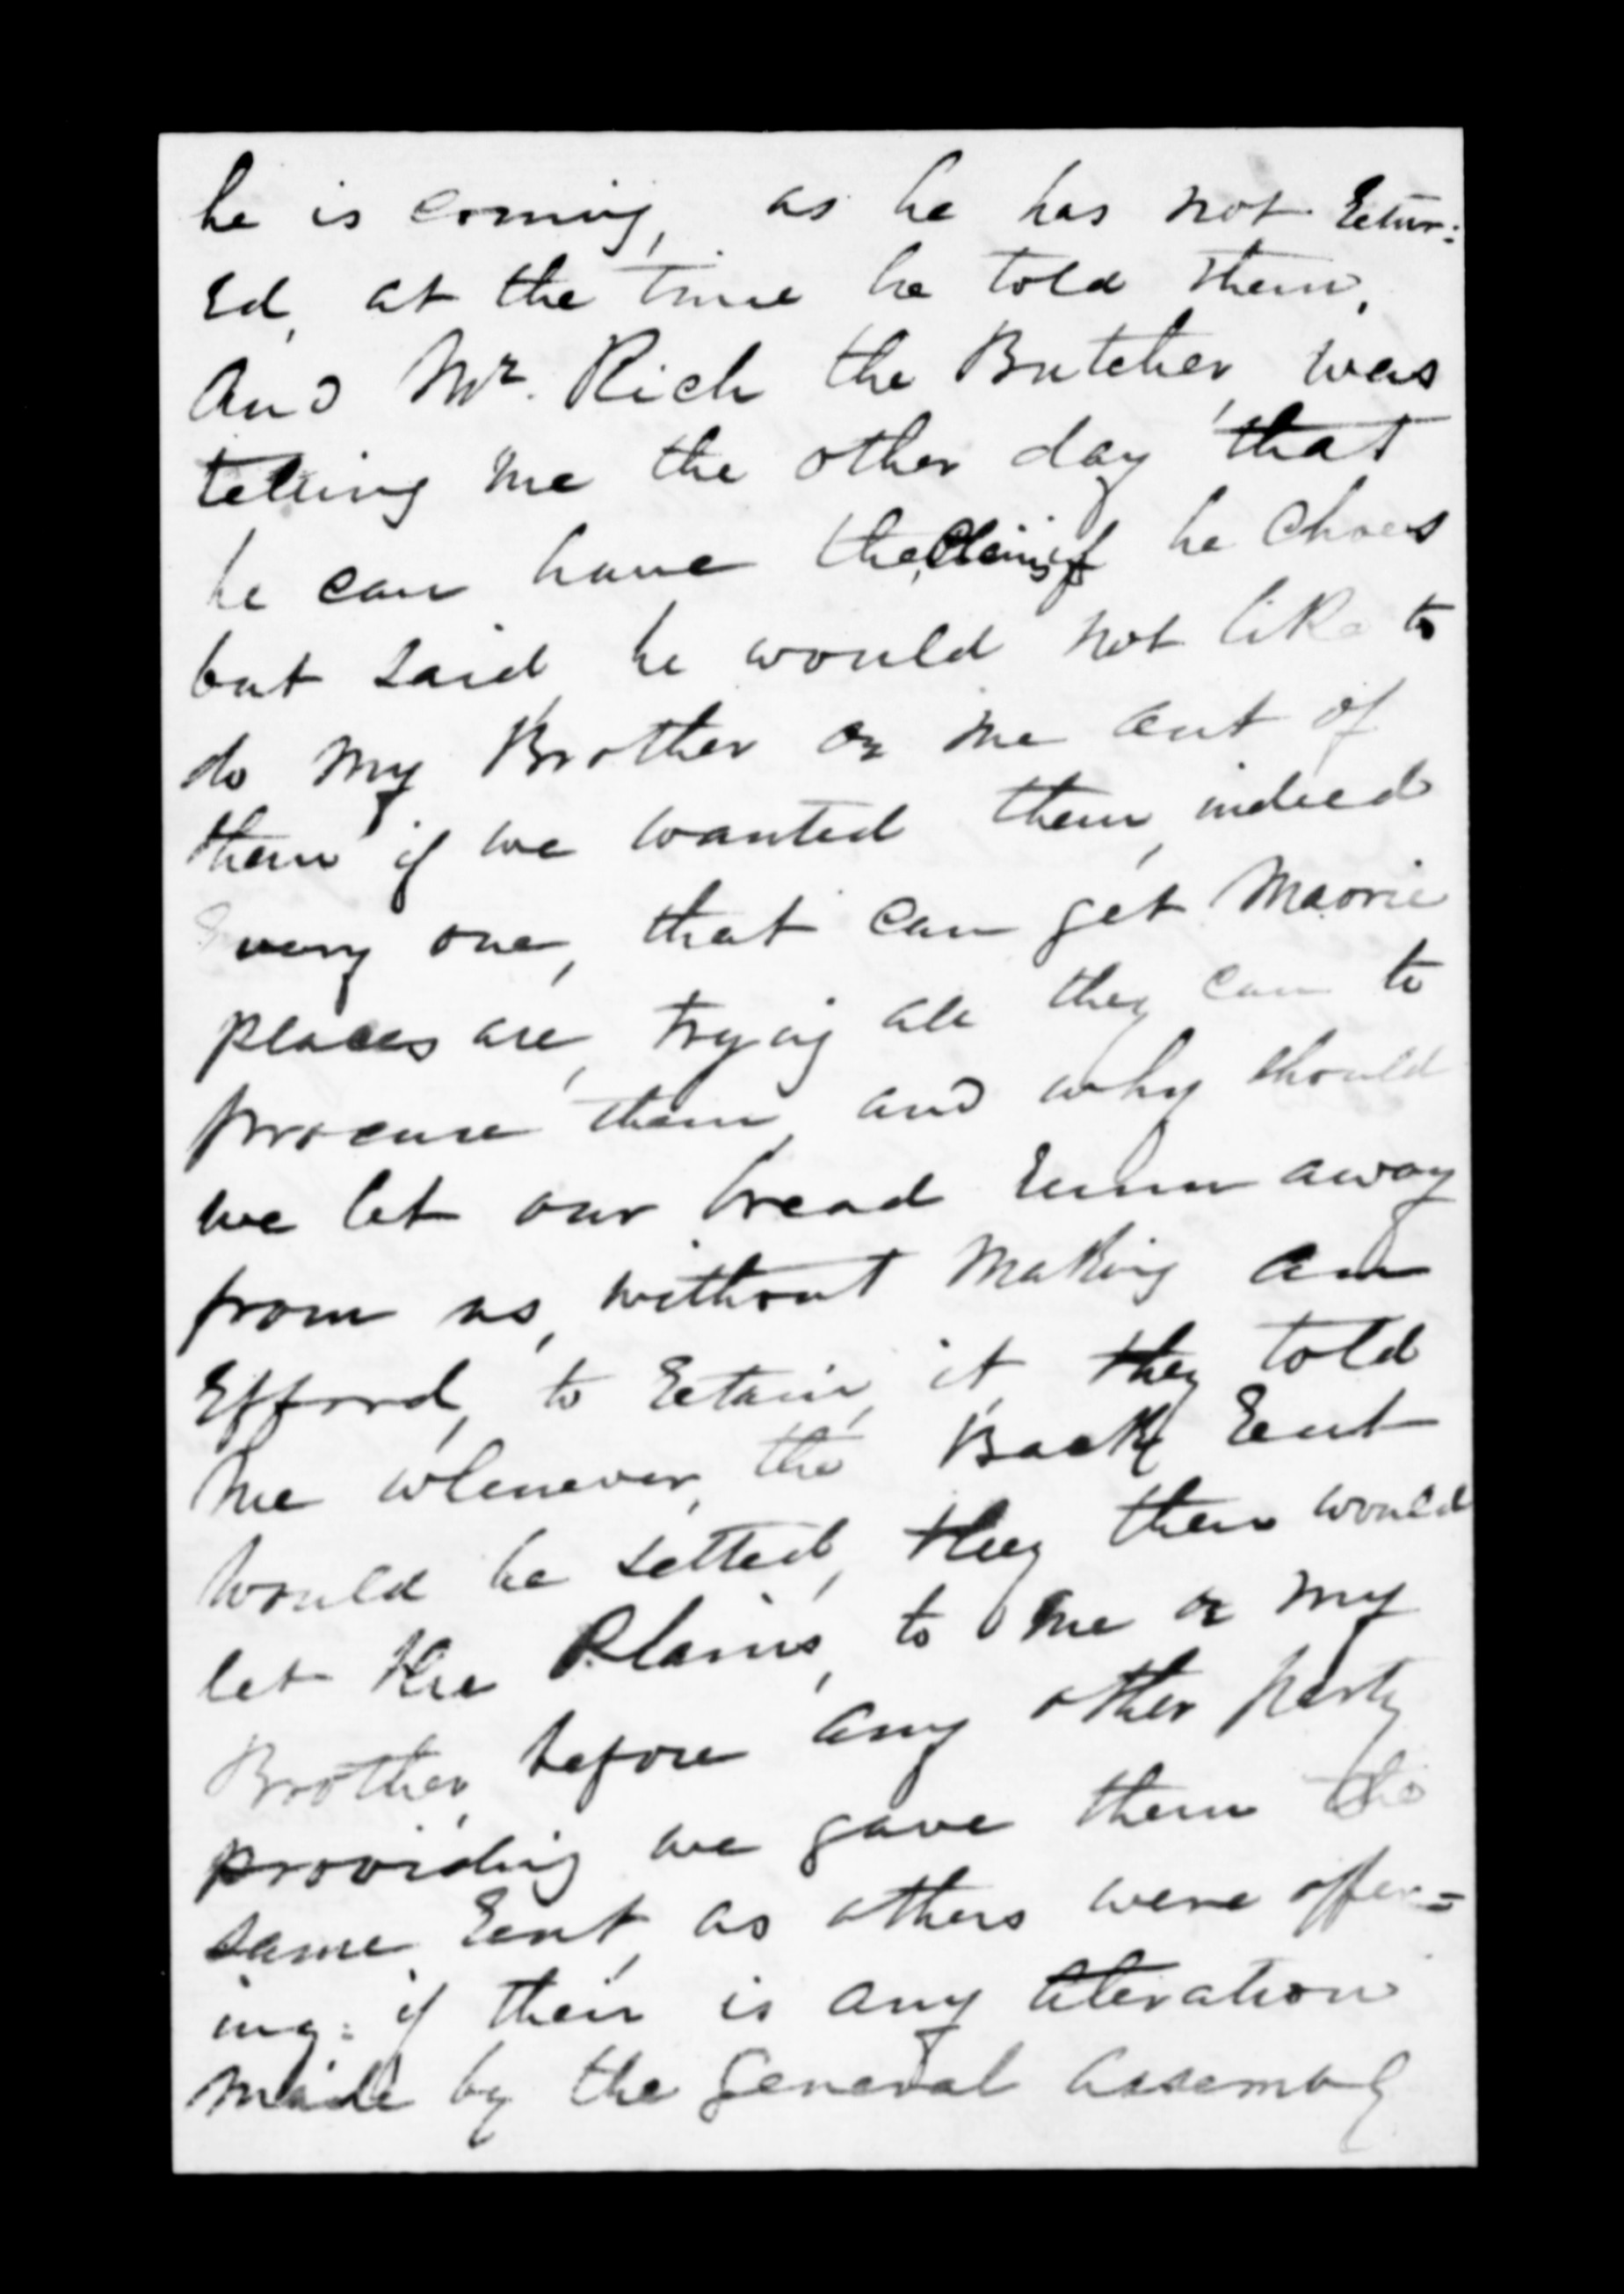 he is coming, as he has not retur:
ed, at the time he told them,
And Mr. Rich the Butcher, was
telling me the other day that
he can have the Plains if he choes
but said, he would not like to
do my Brother or me out of
them if we wanted them, indeed
Every one, that can get Maorie
places are, trying all they can to
procure them, and why should
we let our bread runn away
from us, without making an
Efford, to retain, it, they told
me whenever, the Back rent
would be setted, they then would
let the Plains, to me or my
Brother, before any other party
providing we gave them the
same rent, as others were offer=
ing: if their is any alteration
made by the General Assembly